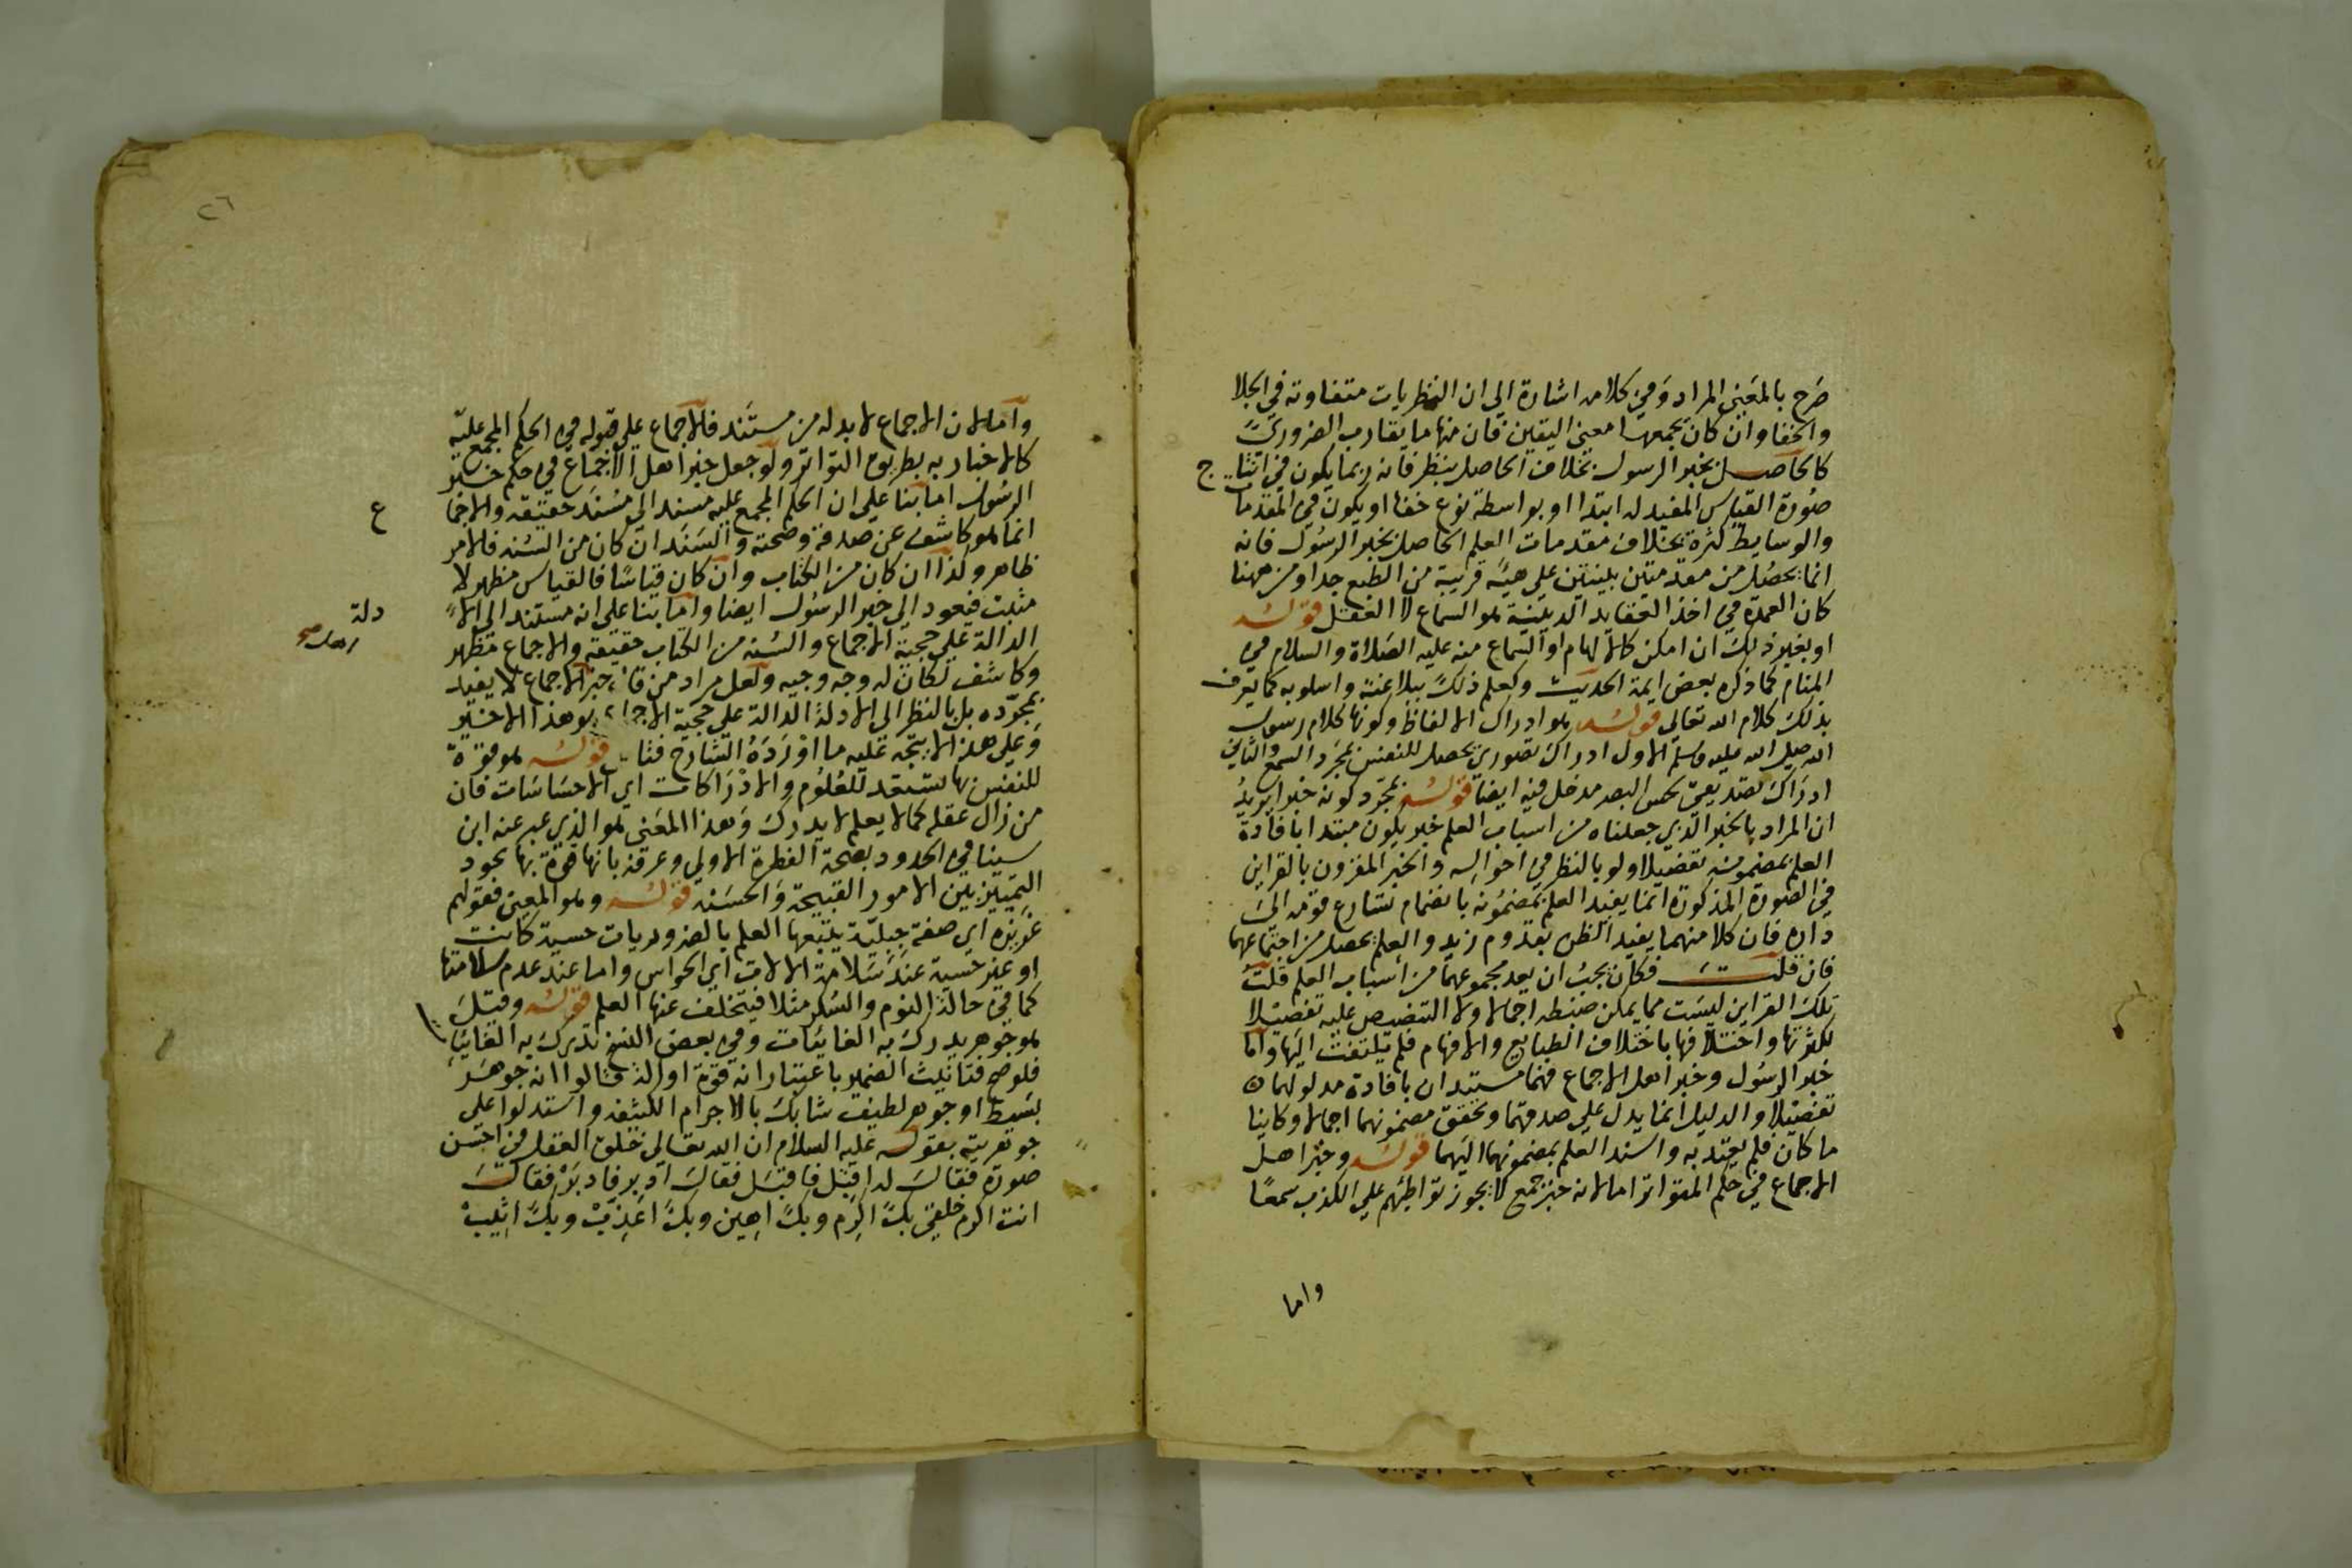 صرح بالمعنى المراد وفي كلامه اشارة الي ان النظريات متفاوته في الجلا
والخفا وان كان يجمعها معنى اليقين فان منها ما يقارب الضروري
كالحاصل بخبر الرسول بخلاف الحاصل بنظر فانه ربما يكون في انتا ج
صورة القياس المفيد له ابتدا او بواسطة نوع خفا او يكون في المقدما
والوسايط كثرة بخلاف مقدمات العلم الحاصل بخبر الرسول فانه
انما يحصل من مقدمتين بلينتين علي هيئة قريبة من الطبع جدا ومن ههنا
كان العمدة في اخذ العقايد الدينية هو السماع لا العقل قوله
او بغير ذلك ان امكن كالالهام او السماع منه عليه الصلاة والسلام في
المنام كما ذكره بعض ايمة الحديث وكعلم ذلك ببلاغته واسلوبه كما يعرف
بذلك كلام الله تعالى قوله هو ادراك الالفاظ وكونها كلام رسول
الله صلي الله عليه وسلم الاول ادراك تصوري يحصل للنفس بمجرد السمع والثاني
ادراك تصديقي لحس البصر مدخل فيه ايضا قوله بمجرد كونه خبرا يريد
ان المراد بالخبر الذي جعلناه من اسباب العلم خبر يكون مبتدا بافادة
العلم بمضمونه تفصيلا ولو بالنظر في احواله والخبر المقرون بالقراين
في الصورة المذكورة انما يفيد العلم بمضمونه بانضمام تسارع قومه الي
داره فان كلا منهما يفيد الظن بقدوم زيد والعلم يحصل من اجتماعهما
فان قلت فكان يجب ان يعد مجموعهما من اسباب العلم قلت
تلك القراين ليست مما يمكن ضبطه اجمالا ولا التنصيص عليه تفصيلا
لكثرتها واختلافها باختلاف الطبايع والافهام فلم يلتفت اليها واما
خبر الرسول وخبر اهل الاجماع فهما مستبدان بافادة مدلولهما
تفصيلا والدليل انما يدل علي صدقهما وتحقق مضمونهما اجمالا وكاينا
ما كان فلم يعتد به واسند العلم بمضمونهما اليهما قوله وخبر اهل
الاجماع في حكم المتواتر اما لانه خبر جمع لا يجوز تواطئهم علي الكذب سمعا
واما
٢٦
واما لان الاجماع لا بد له من مستند فالاجماع علي قبوله في الحكم المجمع عليه
كالاخبار به بطريق التواتر ولو جعل خبر اهل الاجماع في حكم خبر
الرسول اما بنا علي ان الحكم المجمع عليه مسند الي مسند حقيقة والاجما ع
انما هو كاشف عن صدقه وصحته والسند ان كان من السنة فالامر
ظاهر وكذا ان كان من الكتاب وان كان قياسا فالقياس مظهر لا
مثبت فيعود الي خبر الرسول ايضا واما بنا علي انه مستند الي الا دلة
الدالة علي حجية الاجماع والسنة من الكتاب حقيقة والاجماع مظهر
وكاشف لكان له وجه وجيه ولعل مراد من قال خبر الاجماع لا يفيد
بمجرده بل بالنظر الي الادلة الدالة علي حجية الاجماع هو هذا الاخير
وعلي هذا لا يتجه عليه ما اورده الشارح قوله هو قوة
للنفس بها تستعد للعلوم والادراكات اي الاحساسات فان
من زال عقله كما لا يعلم لا يدرك وهذا المعنى هو الذي عبر عنه ابن
سينا في الحدود بصحة الفطرة الاولي وعرفه بانها قوة بها يجود
التمييز بين الامور القبيحة والحسنه قوله وهو المعني بقولهم
غريزة اي صفة جبلية يتبعها العلم بالضروريات حسية كانت
او غير حسية عند سلامة الالات اي الحواس واما عند عدم سلامتها
كما في حالة النوم والسكر مثلا فيتخلف عنها العلم قوله وقيل
هو جوهر يدرك به الغايبات وفي بعض النسخ تدرك به الغايبا
فلوضح فتانيث الضمير باعتبار انه قوة او الة قالوا انه جوهر
بسيط او جوهر لطيف شابك بالاجرام الكثيفه واستدلوا علي
جوهريته بقوله عليه السلام ان الله تعالي خلق العقل في احسن
صورة فقال له اقبل فاقبل فقال ادبر فادبر فقال
انت اكرم خلقي بك اكرم وبك اهين وبك اعذب وبك اثيب